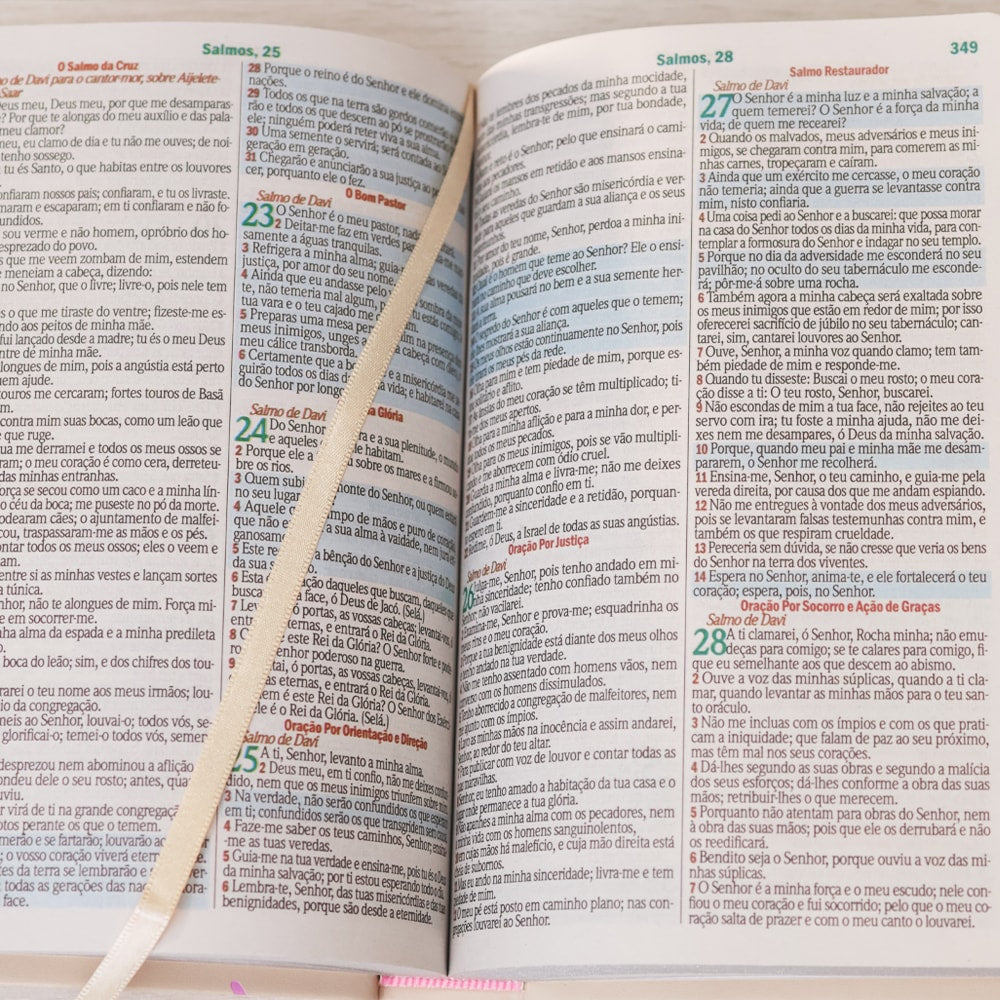 Salmos, 25
O Salmo da Cruz
o de Davi para o cantor-mor, sobre Aijelete-
Saar
eus meu, Deus meu, por que me desamparas-
? Por que te alongas do meu auxílio e das pala-
meu clamor?
meu, eu clamo de dia e tu não me ouves; de noi-
tenho sossego.
tu és Santo, o que habitas entre os louvores
nfiaram nossos pais; confiaram, e tu os livraste.
maram e escaparam; em ti confiaram e não fo-
undidos.
sou verme e não homem, opróbrio dos ho-
esprezado do povo.
s que me veem zombam de mim, estendem
e meneiam a cabeça, dizendo:
no Senhor, que o livre; livre-o, pois nele tem
s o que me tiraste do ventre; fizeste-me es-
ndo aos peitos de minha mãe.
fui lançado desde a madre; tu és o meu Deus
ntre de minha mãe.
longues de mim, pois a angústia está perto
uem ajude.
touros me cercaram; fortes touros de Basã
m.
contra mim suas bocas, como um leão que
e que ruge.
ua me derramei e todos os meus ossos se
ram; o meu coração é como cera, derreteu-
das minhas entranhas.
orça se secou como um caco e a minha lín-
céu da boca; me puseste no pó da morte.
odearam cães; o ajuntamento de malfei-
cou, traspassaram-me as mãos e os pés.
ontar todos os meus ossos; eles o veem e
am.
entre si as minhas vestes e lançam sortes
a túnica.
nhor, não te alongues de mim. Força mi-
e em socorrer-me.
nha alma da espada e a minha predileta
boca do leão; sim, e dos chifres dos tou-
rarei o teu nome aos meus irmãos; lou-
io da congregação.
meis ao Senhor, louvai-o; todos vós, se-
glorificai-o; temei-o todos vós, semen
desprezou nem abominou a aflição
ondeu dele o seu rosto; antes, qua
uviu.
r virá de ti na grande congregaçã
otos perante os que o temem.
merão e se fartarão; louvarão ao
; o vosso coração viverá etern
es da terra se lembrarão e
todas as gerações das na
face.
28 Porque o reino é do Senhor e ele domina
nações.
29 Todos os que na terra são gordos
rão e todos os que descem ao pó se prostrarão
ele; ninguém poderá reter viva a sua alma.
30 Uma semente o servirá; será contada
geração em geração.
31 Chegarão e anunciarão a sua justiça ao
cer, porquanto ele o fez.
O Bom Pastor
Salmo de Davi
23 O Senhor é o meu pastor, nad
2 Deitar-me faz em verdes
samente a águas tranquilas.
3 Refrigera a minha alma; guia-
justiça, por amor do seu nome.
4 Ainda que eu andasse pelo sombra da
te, não temeria mal algum, p tu estás
tua vara e o teu cajado me
5 Preparas uma mesa per na presença
meus inimigos, unges a cabeça com
meu cálice transborda.
6 Certamente que a bo e a misericórdia
guirão todos os dias d vida; e habitarei
do Senhor por longo
Salmo de Davi a Glória
24 Do Senhor ra e a sua plenitude, o mundo
e aqueles habitam.
2 Porque ele a sobre os mares e a firmou
bre os rios.
3 Quem subi monte do Senhor, ou quem
no seu lugar
4 Aquele mpo de mãos e puro de coração,
que não e a sua alma à vaidade, nem
ganosam
5 Este re a bênção do Senhor e a justiça do
da sua
6 Esta ação daqueles que buscam, daqueles
busca a face, ó Deus de Jacó. (Selá.)
7 Lev ó portas, as vossas cabeças; levantai-
entr ernas, e entrará o Rei da Glória.
8 Q este Rei da Glória? O Senhor forte e
ro enhor poderoso na guerra.
9 tai, ó portas, as vossas cabeças, levantai-
as eternas, e entrará o Rei da Glória.
em é este Rei da Glória? O Senhor dos
ele é o Rei da Glória. (Selá.)
Oração Por Orientação e Direção
Salmo de Davi
25 A ti, Senhor, levanto a minha alma.
2 Deus meu, em ti confio, não me deixes
dido, nem que os meus inimigos triunfem sobre mim.
3 Na verdade, não serão confundidos os que esperam
em ti; confundidos serão os que transgridem sem
4 Faze-me saber os teus caminhos, Senhor; ensina-
-me as tuas veredas.
5 Guia-me na tua verdade e ensina-me, pois tu és o Deus
da minha salvação; por ti estou esperando todo o dia.
6 Lembra-te, Senhor, das tuas misericórdias e das tuas
benignidades, porque são desde a eternidade.
Salmos, 28
349
lembres dos pecados da minha mocidade,
minhas transgressões; mas segundo a tua
lembra-te de mim, por tua bondade,
reto é o Senhor; pelo que ensinará o cami-
pecadores.
mansos em retidão e aos mansos ensina-
as veredas do Senhor são misericórdia e ver-
para aqueles que guardam a sua aliança e os seus
do teu nome, Senhor, perdoa a minha ini-
pois é grande.
é o homem que teme ao Senhor? Ele o ensi-
no caminho que deve escolher.
alma pousará no bem e a sua semente her-
a terra.
do Senhor é com aqueles que o temem;
lhes mostrará a sua aliança.
meus olhos estão continuamente no Senhor, pois
meus pés da rede.
para mim e tem piedade de mim, porque es-
solitário e aflito.
ânsias do meu coração se têm multiplicado; ti-
dos meus apertos.
para a minha aflição e para a minha dor, e per-
os meus pecados.
para os meus inimigos, pois se vão multipli-
e me aborrecem com ódio cruel.
Guarda a minha alma e livra-me; não me deixes
confundido, porquanto confio em ti.
Guardem-me a sinceridade e a retidão, porquan-
espero em ti.
Redime, ó Deus, a Israel de todas as suas angústias.
Oração Por Justiça
Salmo de Davi
26 Julga-me, Senhor, pois tenho andado em mi-
nha sinceridade; tenho confiado também no
Senhor; não vacilarei.
Examina-me, Senhor e prova-me; esquadrinha os
meus rins e o meu coração.
Porque a tua benignidade está diante dos meus olhos
e tenho andado na tua verdade.
Não me tenho assentado com homens vãos, nem
converso com os homens dissimulados.
Tenho aborrecido a congregação de malfeitores, nem
me ajunto com os ímpios.
Lavo as minhas mãos na inocência e assim andarei,
Senhor, ao redor do teu altar.
Para publicar com voz de louvor e contar todas as
tuas maravilhas.
Senhor, eu tenho amado a habitação da tua casa e o
lugar onde permanece a tua glória.
Não apanhes a minha alma com os pecadores, nem
a minha vida com os homens sanguinolentos,
em cujas mãos há malefício, e cuja mão direita está
cheia de subornos.
Mas eu ando na minha sinceridade; livra-me e tem
piedade de mim.
O meu pé está posto em caminho plano; nas con-
gregações louvarei ao Senhor.
Salmo Restaurador
Salmo de Davi
27 O Senhor é a minha luz e a minha salvação; a
quem temerei? O Senhor é a força da minha
vida; de quem me recearei?
2 Quando os malvados, meus adversários e meus ini-
migos, se chegaram contra mim, para comerem as mi-
nhas carnes, tropeçaram e caíram.
3 Ainda que um exército me cercasse, o meu coração
não temeria; ainda que a guerra se levantasse contra
mim, nisto confiaria.
4 Uma coisa pedi ao Senhor e a buscarei: que possa morar
na casa do Senhor todos os dias da minha vida, para con-
templar a formosura do Senhor e indagar no seu templo.
5 Porque no dia da adversidade me esconderá no seu
pavilhão; no oculto do seu tabernáculo me esconde-
rá; pôr-me-á sobre uma rocha.
6 Também agora a minha cabeça será exaltada sobre
os meus inimigos que estão em redor de mim; por isso
oferecerei sacrifício de júbilo no seu tabernáculo; can-
tarei, sim, cantarei louvores ao Senhor.
7 Ouve, Senhor, a minha voz quando clamo; tem tam-
bém piedade de mim e responde-me.
8 Quando tu disseste: Buscai o meu rosto; o meu cora-
ção disse a ti: O teu rosto, Senhor, buscarei.
9 Não escondas de mim a tua face, não rejeites ao teu
servo com ira; tu foste a minha ajuda, não me dei-
xes nem me desampares, ó Deus da minha salvação.
10 Porque, quando meu pai e minha mãe me desam-
pararem, o Senhor me recolherá.
11 Ensina-me, Senhor, o teu caminho, e guia-me pela
vereda direita, por causa dos que me andam espiando.
12 Não me entregues à vontade dos meus adversários,
pois se levantaram falsas testemunhas contra mim, e
também os que respiram crueldade.
13 Pereceria sem dúvida, se não cresse que veria os bens
do Senhor na terra dos viventes.
14 Espera no Senhor, anima-te, e ele fortalecerá o teu
coração; espera, pois, no Senhor.
Oração Por Socorro e Ação de Graças
Salmo de Davi
28 A ti clamarei, ó Senhor, Rocha minha; não emu-
deças para comigo; se te calares para comigo, fi-
que eu semelhante aos que descem ao abismo.
2 Ouve a voz das minhas súplicas, quando a ti cla-
mar, quando levantar as minhas mãos para o teu san-
to oráculo.
3 Não me incluas com os ímpios e com os que prati-
cam a iniquidade; que falam de paz ao seu próximo,
mas têm mal nos seus corações.
4 Dá-lhes segundo as suas obras e segundo a malícia
dos seus esforços; dá-lhes conforme a obra das suas
mãos; retribuir-lhes o que merecem.
5 Porquanto não atentam para obras do Senhor, nem
à obra das suas mãos; pois que ele os derrubará e não
os reedificará.
6 Bendito seja o Senhor, porque ouviu a voz das mi-
nhas súplicas.
7 O Senhor é a minha força e o meu escudo; nele con-
fiou o meu coração e fui socorrido; pelo que o meu co-
ração salta de prazer e com o meu canto o louvarei.